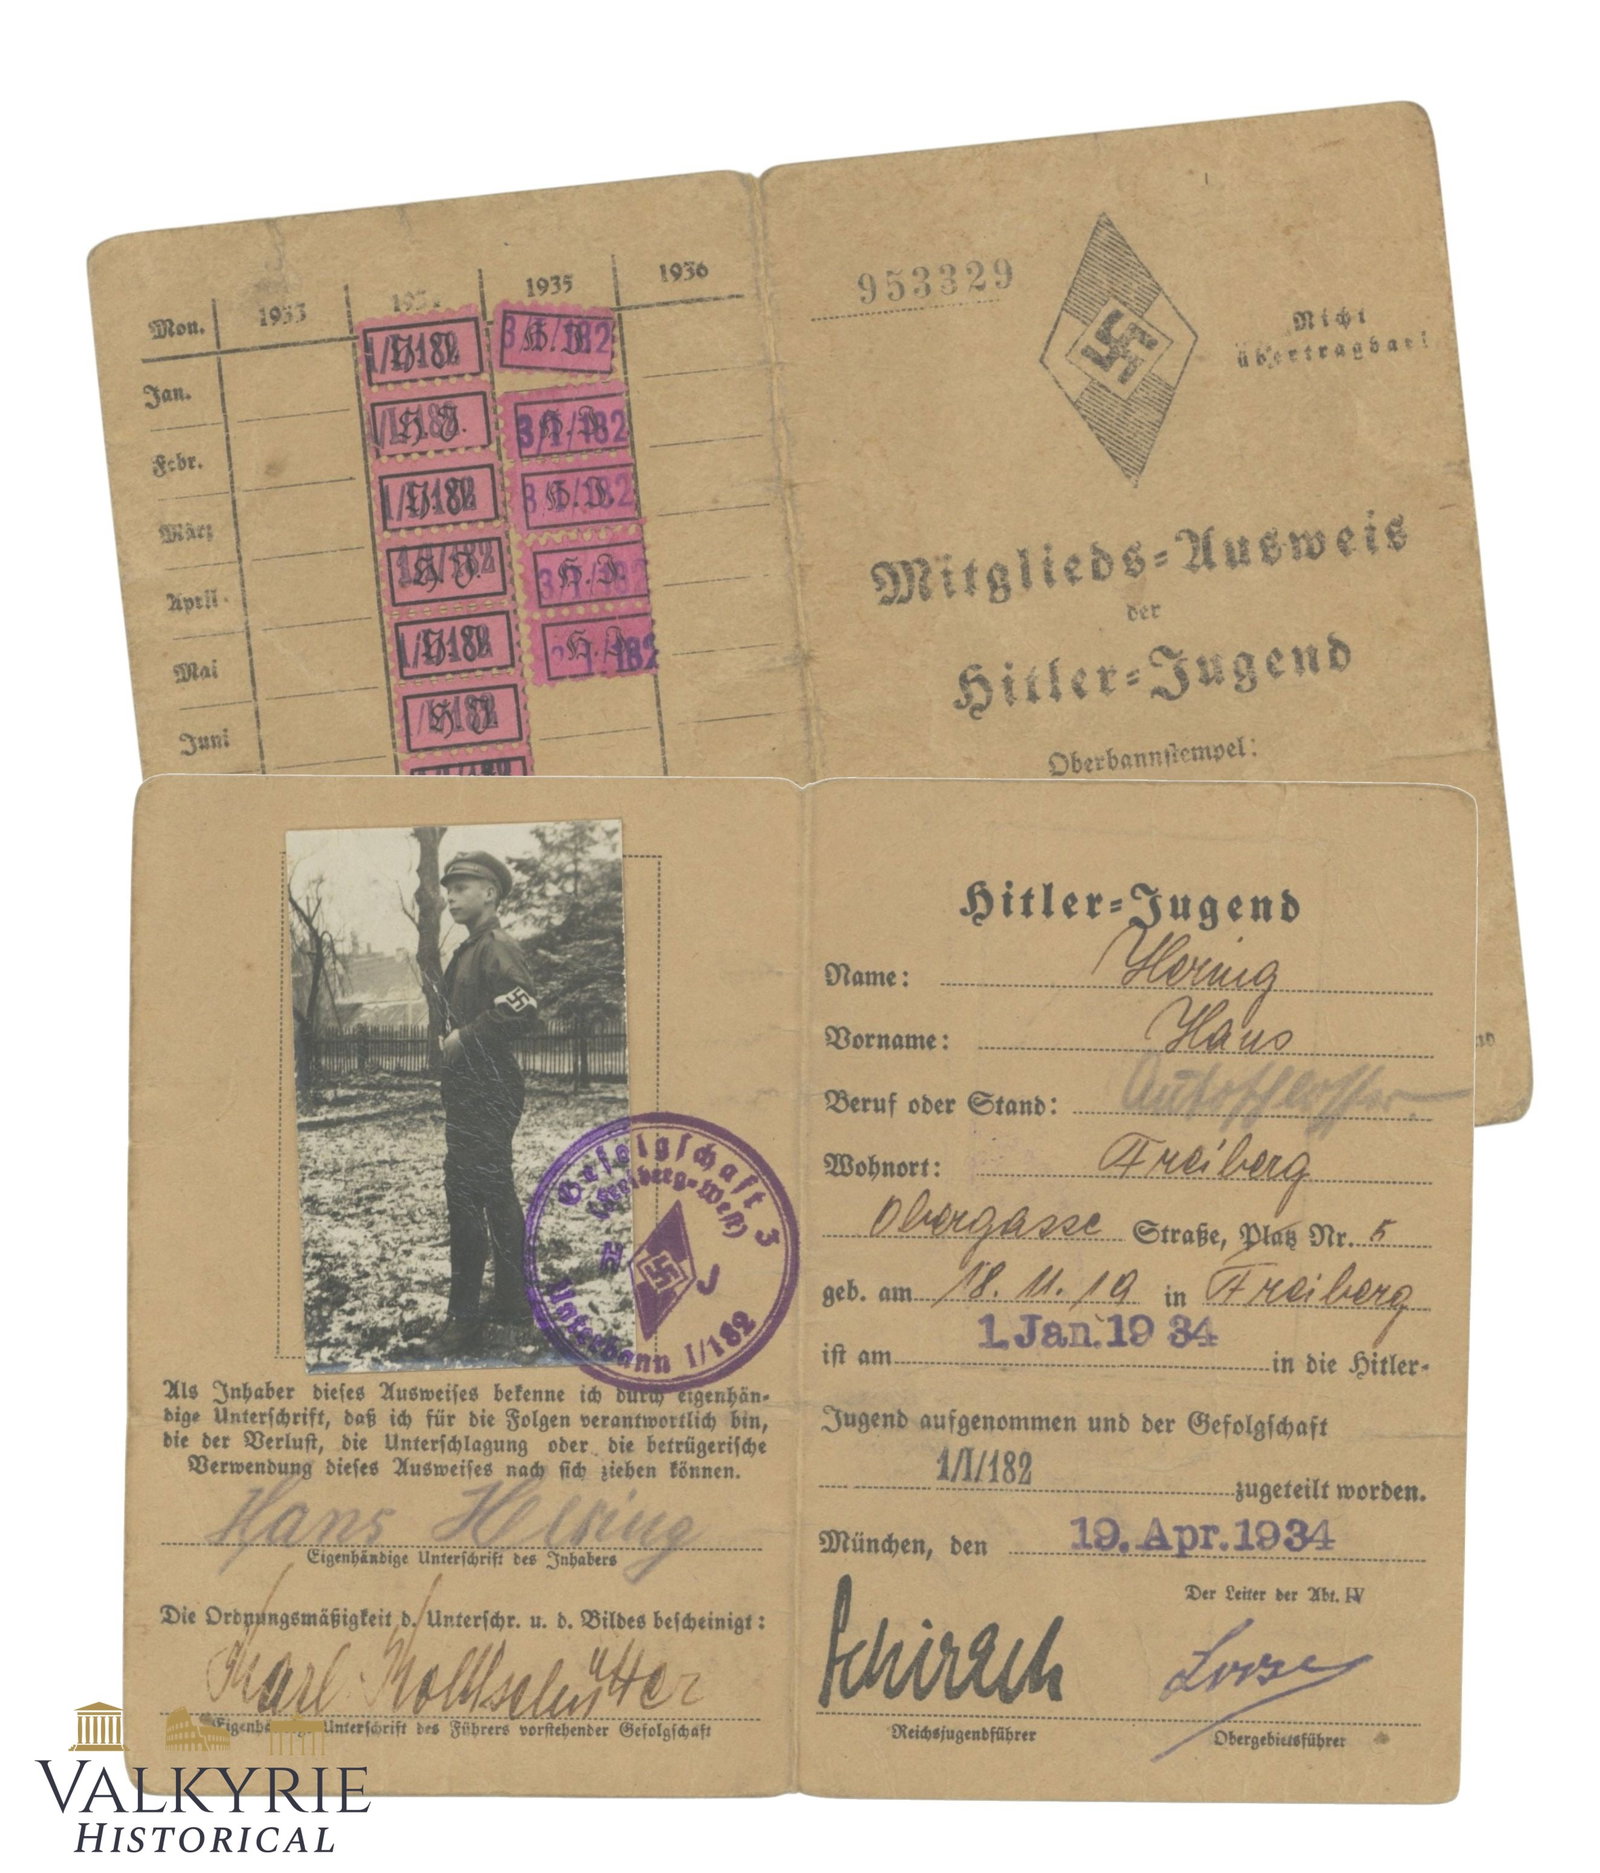 Mon.
1933
1935
1936
Jan.
Febr.
März
April
Mai
Juni
1/I/182
3/I/182
H. J.
3/I/182
H. J.
3/I/182
H. J.
1/I/182
H. J.
3/I/182
H. J.
953329
Nicht
übertragbar!
Mitglieds-Ausweis
der
Hitler-Jugend
Oberbannstempel:
Gefolgschaft 3
(Freiberg-West)
H J
Unterbann I/182
Als Inhaber dieses Ausweises bekenne ich durch eigenhän-
dige Unterschrift, daß ich für die Folgen verantwortlich bin,
die der Verlust, die Unterschlagung oder die betrügerische
Verwendung dieses Ausweises nach sich ziehen können.
Hans Hering
Eigenhändige Unterschrift des Inhabers
Die Ordnungsmäßigkeit d. Unterschr. u. d. Bildes bescheinigt:
Karl
Eigenhändige Unterschrift des Führers vorstehender Gefolgschaft
Hitler-Jugend
Name: Hering
Vorname: Hans
Beruf oder Stand: Autoschlosser.
Wohnort: Freiberg
Obergasse Straße, Platz Nr. 5
geb. am 18. 11. 19 in Freiberg
ist am 1. Jan. 19 34 in die Hitler-
Jugend aufgenommen und der Gefolgschaft
1/I/182 zugeteilt worden.
München, den 19. Apr. 1934
Der Leiter der Abt. IV
Schirach
Reichsjugendführer
Obergebietsführer
VALKYRIE
HISTORICAL